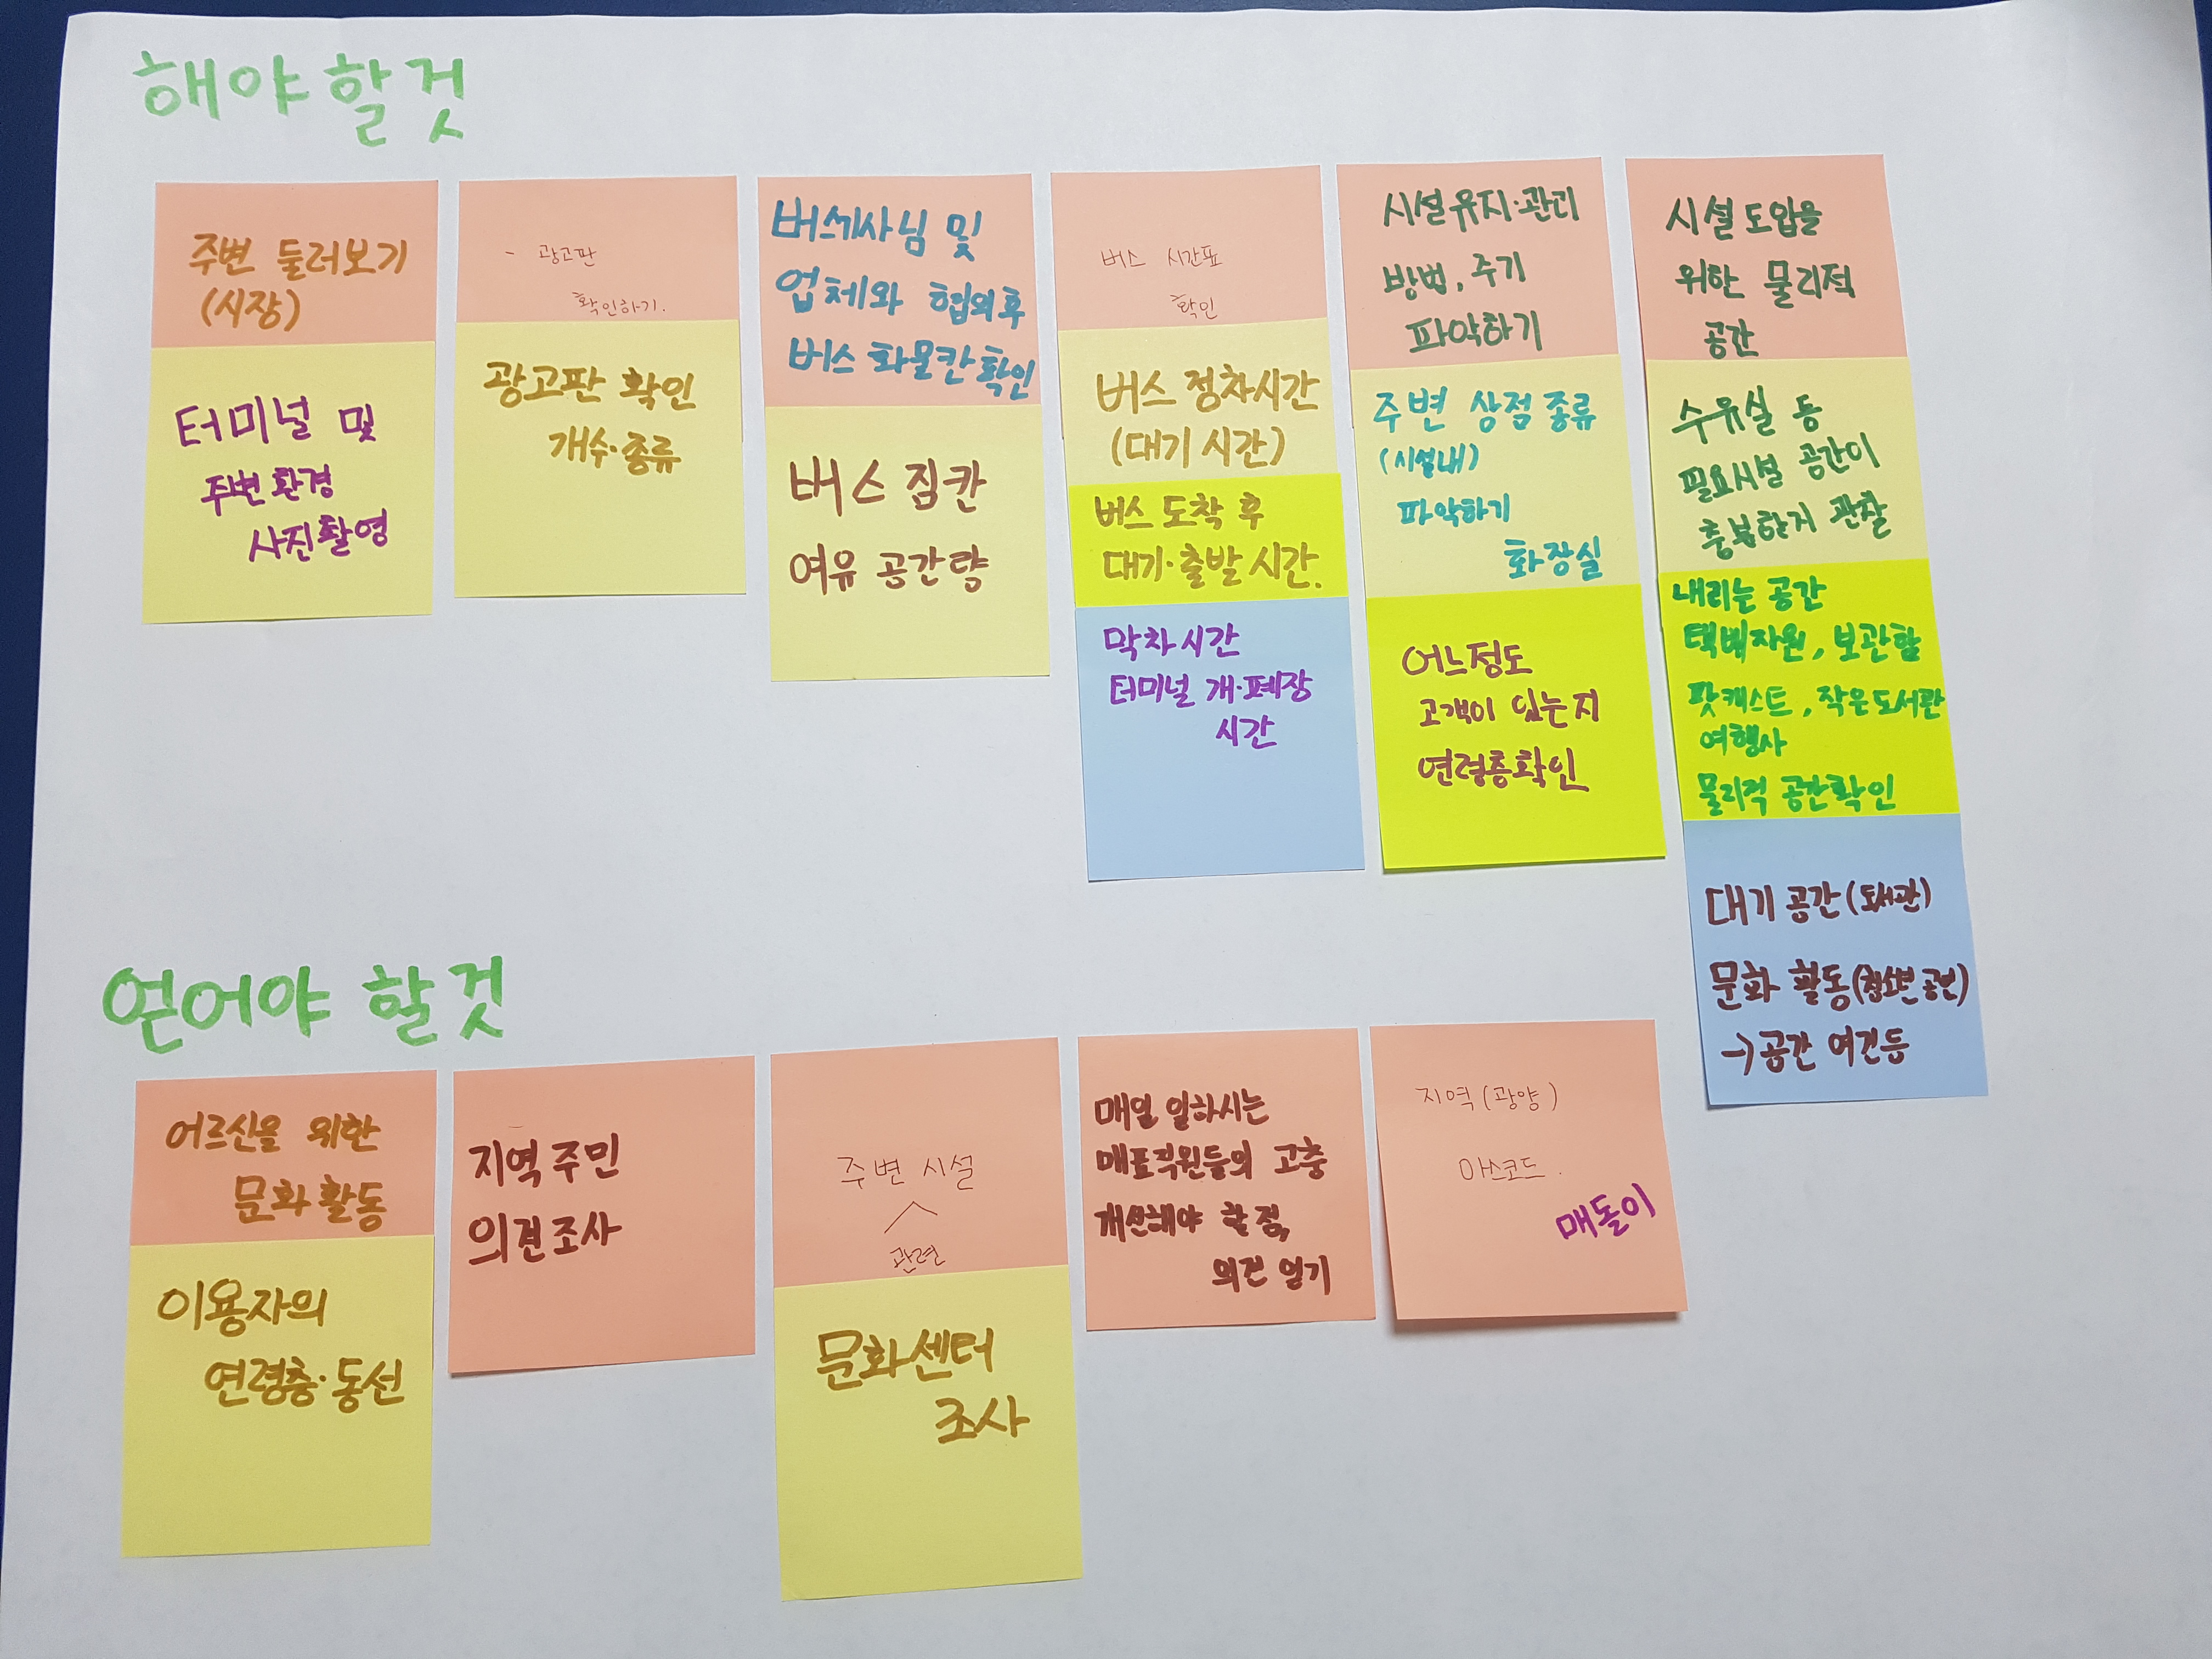 해야할것
주변 둘러보기
(시장)
터미널 및
주변환경
사진촬영
- 광고판
확인하기.
광고판 확인
개수·종류
버스기사님 및
업체와 협의후
버스 화물칸 확인
버스 짐칸
여유 공간량
버스 시간표
확인
버스 정차시간
(대기시간)
버스 도착 후
대기·출발시간.
막차시간
터미널 개·폐장
시간
시설유지·관리
방법, 주기
파악하기
주변 상점 종류
(시설내)
파악하기
화장실
어느정도
고객이 있는지
연령층확인
시설 도입을
위한 물리적
공간
수유실 등
필요시설 공간이
충분한지 관찰
내리는 공간
택배자원, 보관함
팟캐스트, 작은도서관
여행사
물리적 공간확인
대기 공간 (좌판)
문화 활동(청년 공연)
→ 공간 여건 등
얻어야 할 것
어르신을 위한
문화 활동
이용자의
연령층·동선
지역 주민
의견조사
주변 시설
관련
문화센터
조사
매일 일하시는
매표직원들의 고충
개선해야 할 점,
의견 얻기
지역(광양)
앵커도.